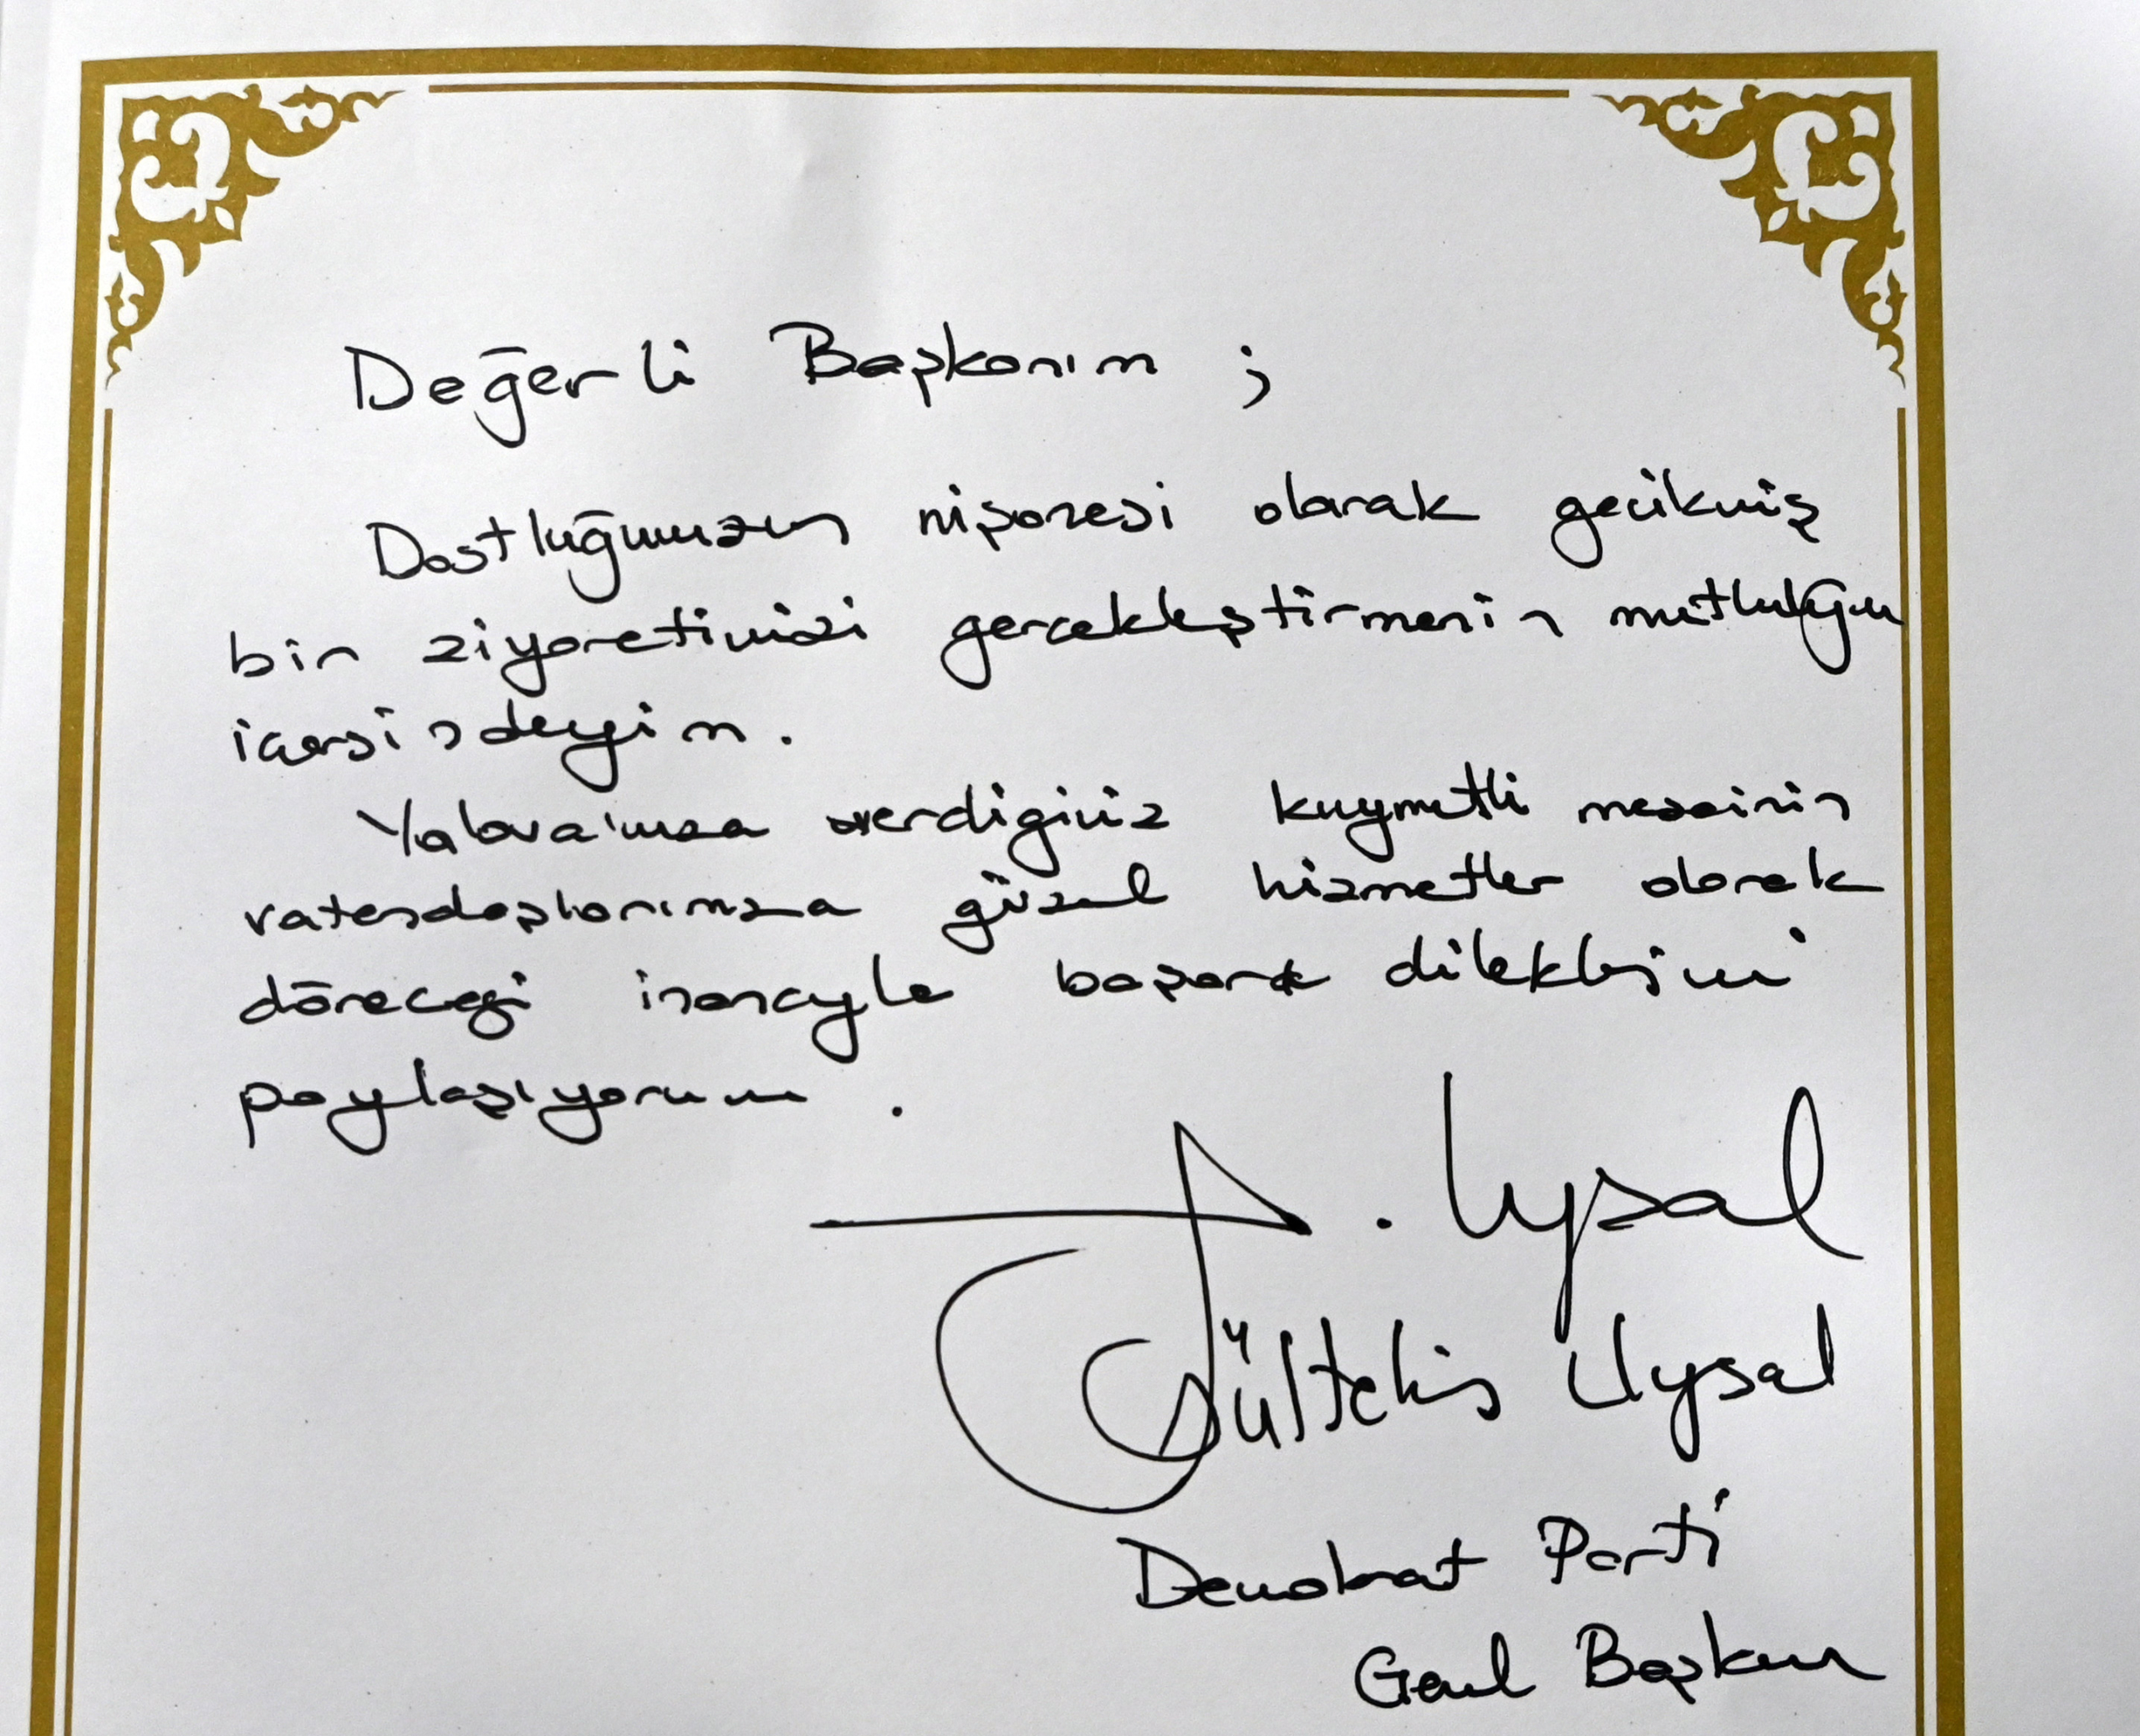 Değerli Başkanım ;
Dostluğumuzun nişanesi olarak gecikmiş
bir ziyaretimizi gerçekleştirmenin mutluluğu
içersindeyim.
Yalova'mıza verdiğiniz kıymetli mesainin
vatandaşlarımıza güzel hizmetler olarak
döneceği inancıyla başarı dileklerimi
paylaşıyorum .
G. Uysal
Gültekin Uysal
Demokrat Parti
Genel Başkanı